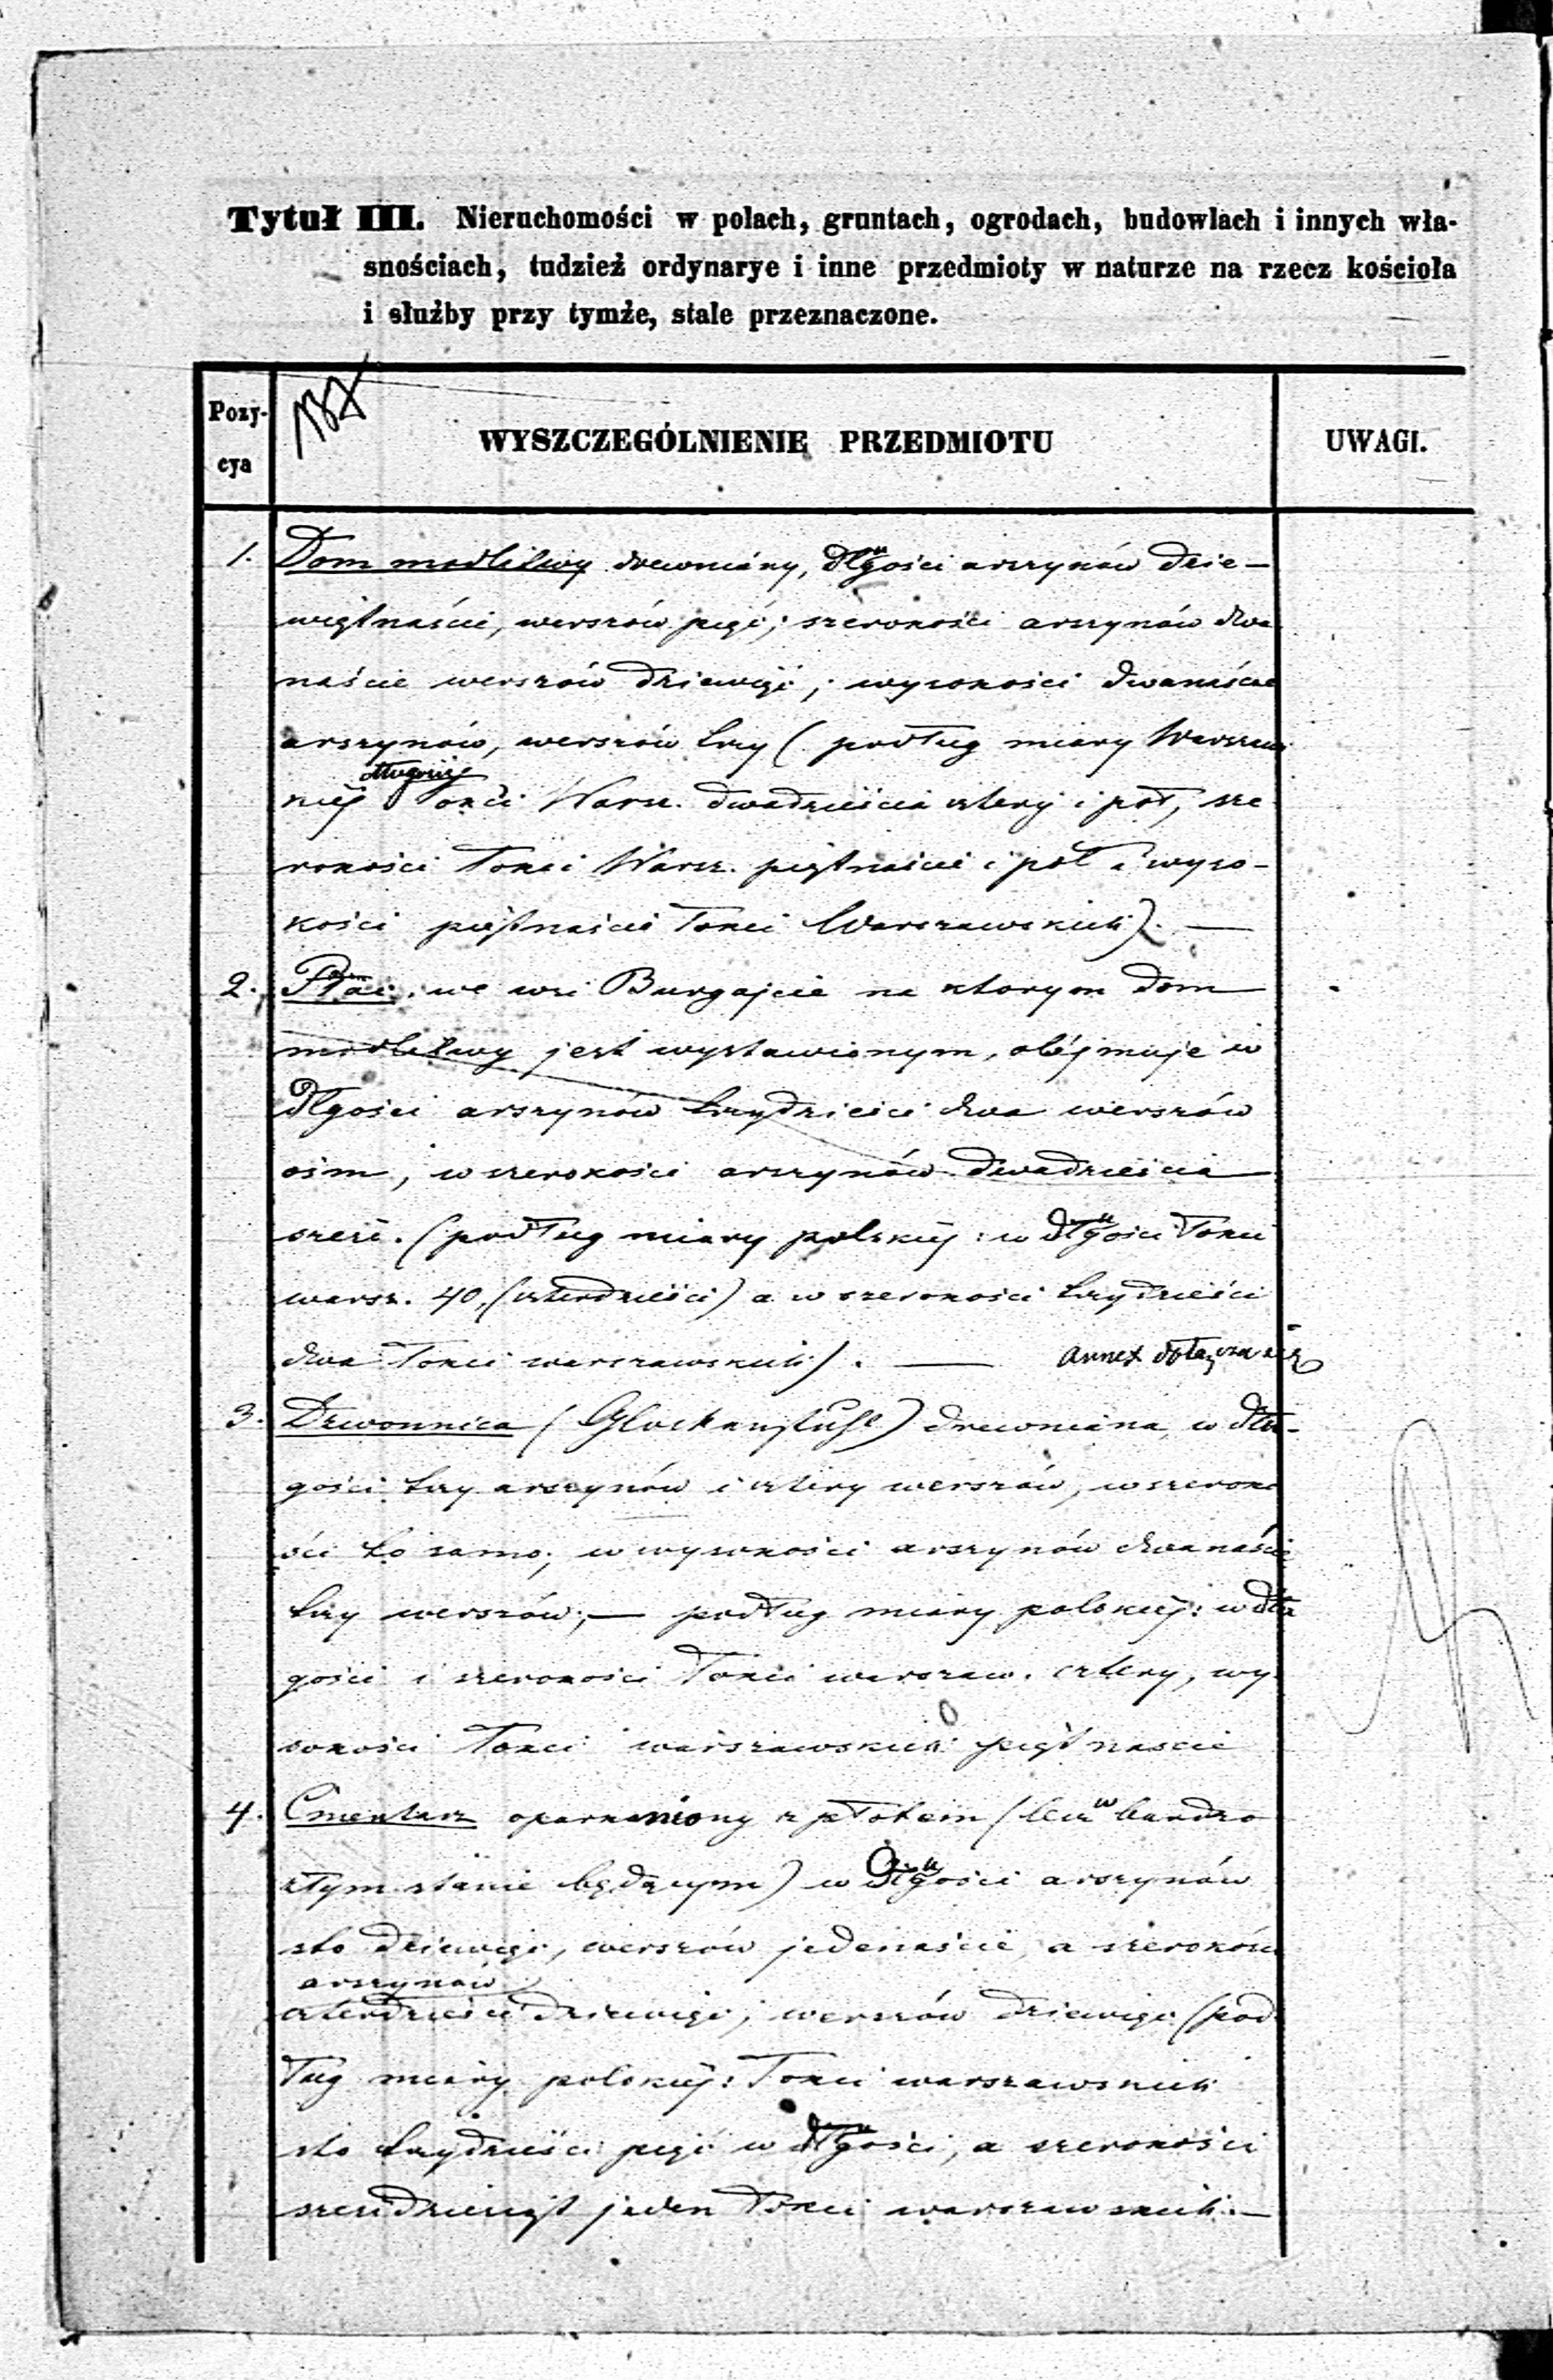 Tytuł III. Nieruchomości w polach, gruntach, ogrodach, budowlach i innych wła-
snościach, tudzież ordynarye i inne przedmioty w naturze na rzecz kościoła
i służby przy tymże, stale przeznaczone.
Pozy-
cya
WYSZCZEGÓLNIENIE PRZEDMIOTU
UWAGI.
1. Dom modlitwy drewniány, długości arszynów dzie-
więtnaście, werszów pięć; szerokości arszynów dwa
naście werszów dziewięć; wysokości dwanaście
arszynów, werszów trzy (podług miary Warszaw
długości
kiéj łokci Warsz. dwadzieścia cztery i pół, sze
rokości łokci Warsz. piętnaście i pół a wyso-
kości piętnaście łokci Warszawskich). —
2. Plac we wsi Burgajcie na którym dom
modlitwy jest wystawionym, obéjmuje w
dłgości arszynów trzydzieści dwa werszów
ośm, w szerokości arszynów dwadzieścia
sześć. (podług miary polskiéj: w długości łokci
warsz. 40, (czterdzieści) a w szerokości trzydzieści
dwa łokci warszawskich). — annex dołącza się
3. Dzwonnica (Glockenstuhl) drewniána, w dłu-
gości trzy arszynów i cztery werszów, w szeroko
ści to samo; w wysokości arszynów dwanaście
trzy werszów; — podług miary polskiéj: w dłu
gości i szerokości łokci warszaw. cztery, wy-
sokości łokci warszawskich piętnaście
4. Cmentarz oparkaniony z płotem (lecz w bardzo
złym stanie będącym) w długości arszynów
sto dziewięć, werszów jedenaście, a szerokości
arszynów
czterdzieści dziewięć; werszów dziewięć (pod-
ług miáry polskiéj: łokci warszawskich
sto trzydzieści pięć w długości, a szerokości
sześćdziesiąt jeden łokci warszawskich. —